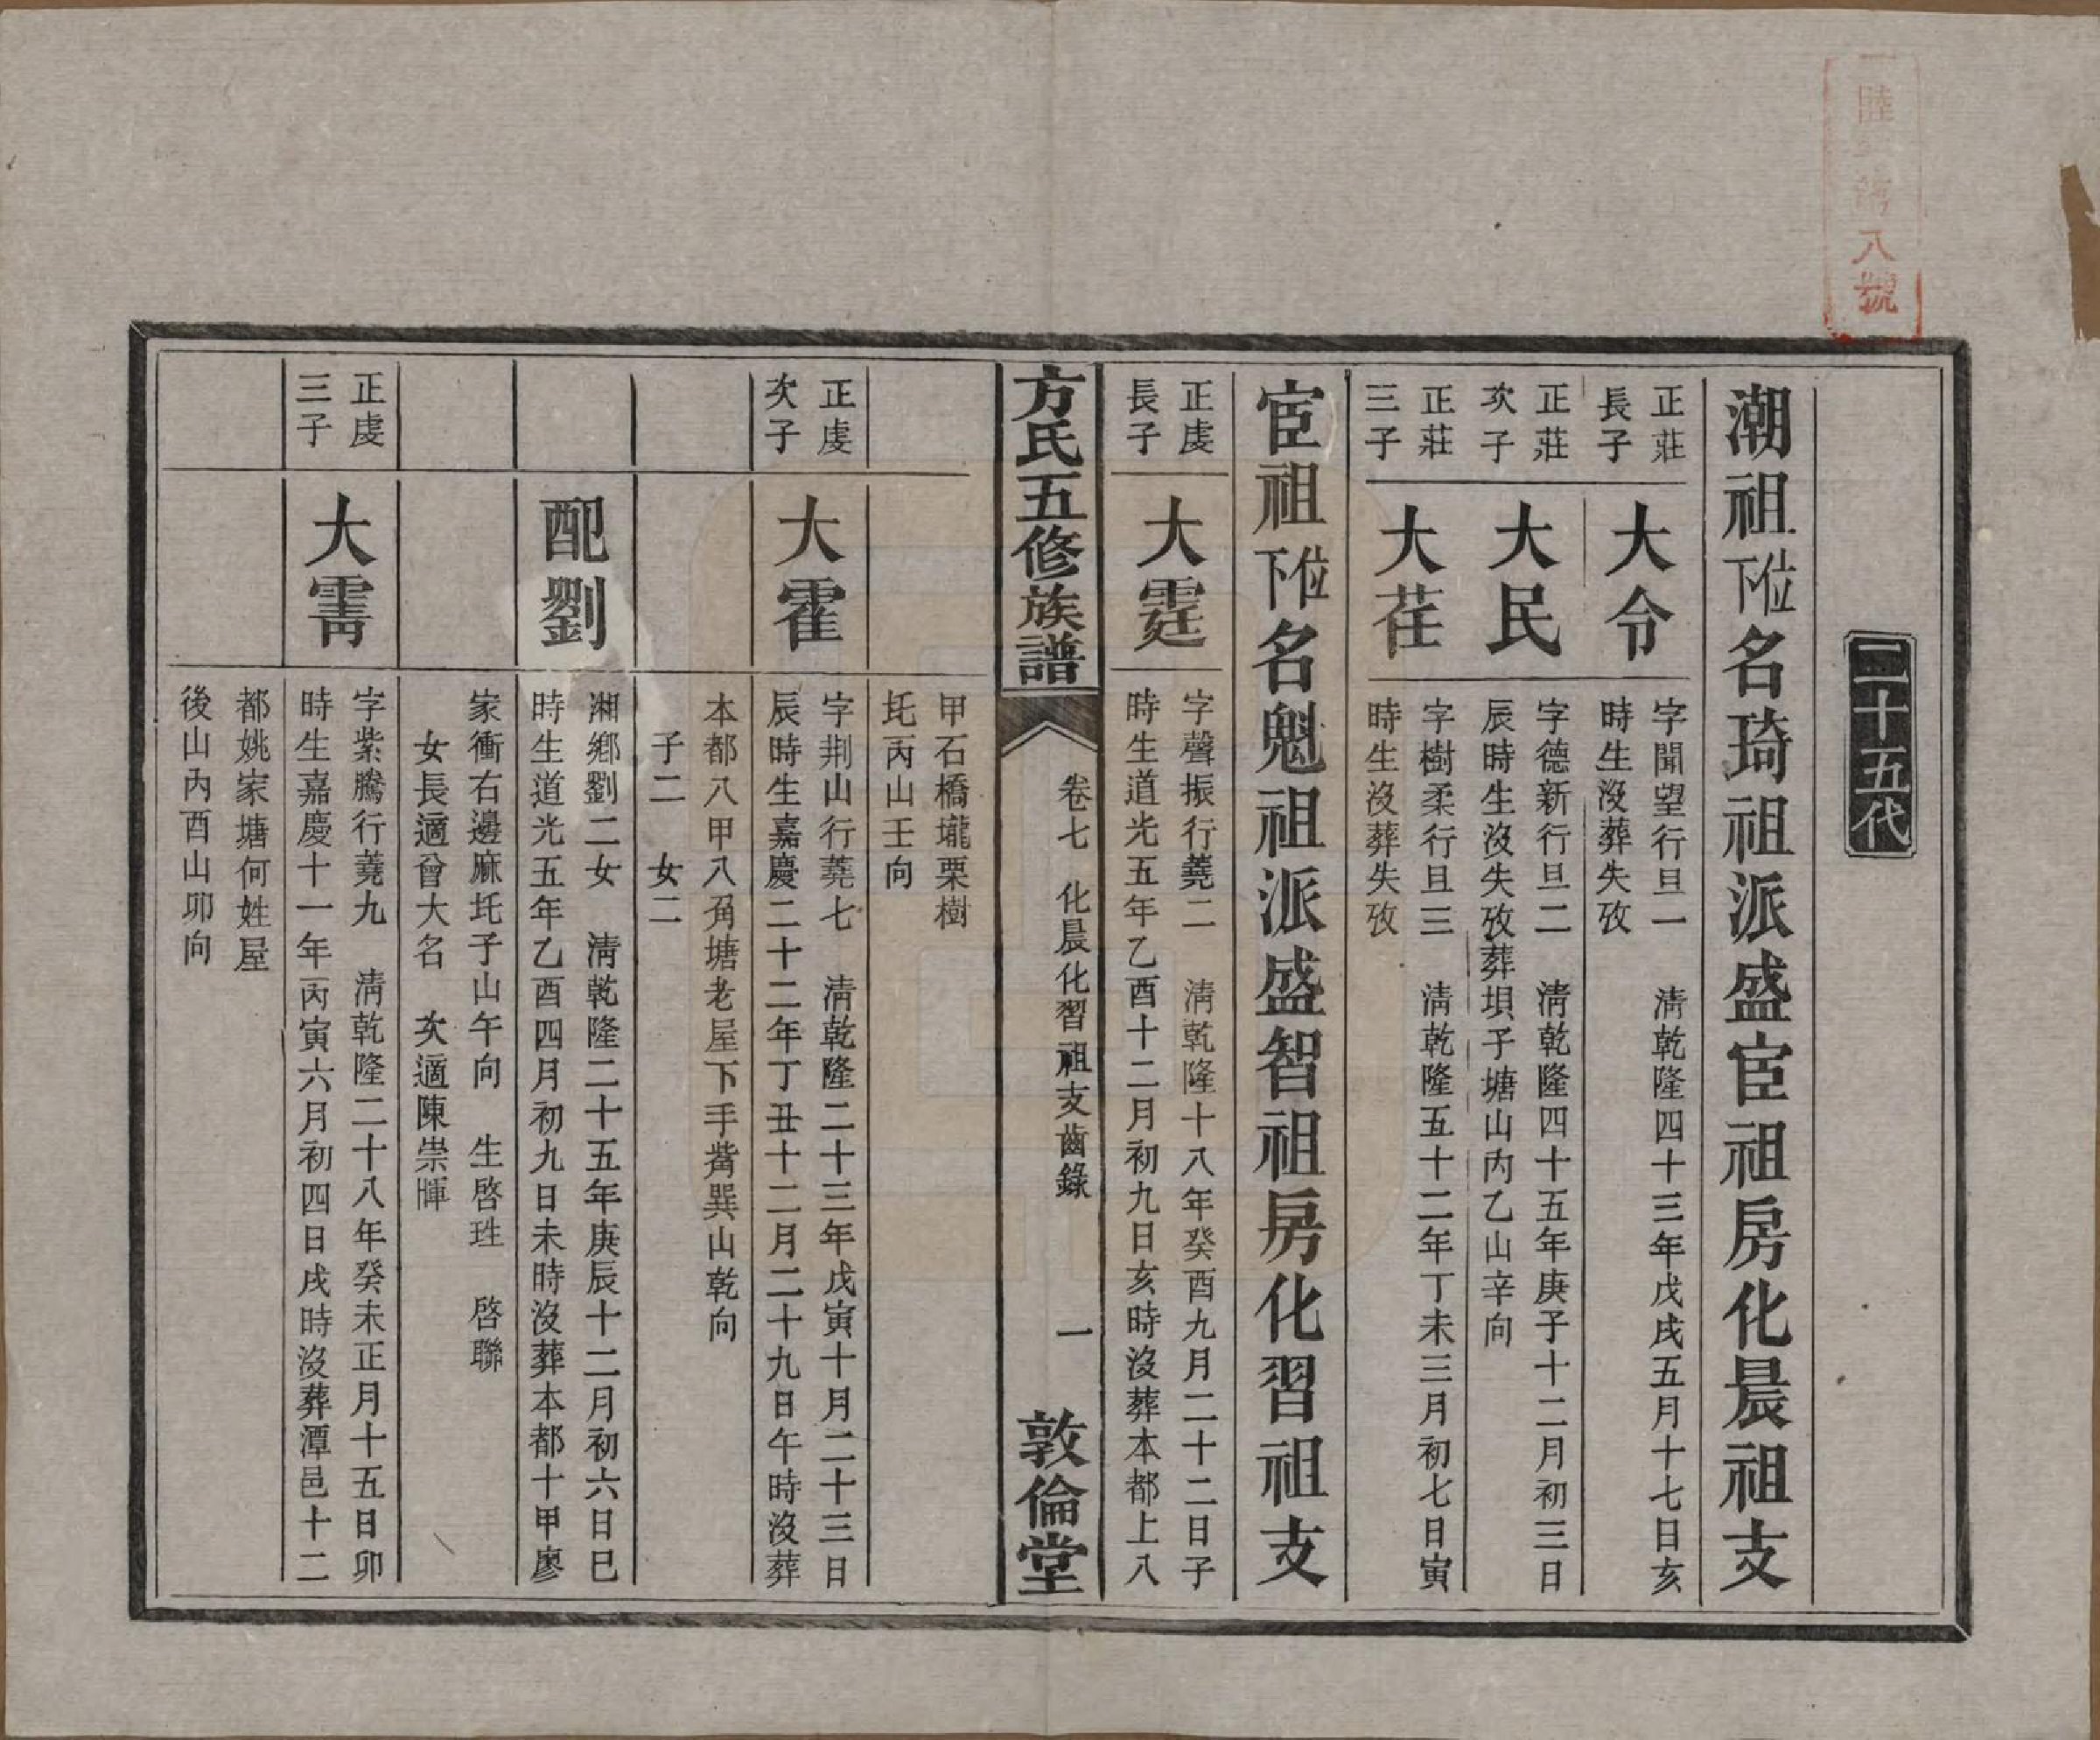 二十五代
潮祖位下名琦祖派盛宦祖房化晨祖支
正莊長子
大令
字聞望行旦一　淸乾隆四十三年戊戌五月十七日亥
時生沒葬失攷
正莊次子
大民
字德新行旦二　淸乾隆四十五年庚子十二月初三日
辰時生沒失攷葬垻子塘山內乙山辛向
正莊三子
大荏
字樹柔行旦三　淸乾隆五十二年丁未三月初七日寅
時生沒葬失攷
宦祖位下名魁祖派盛智祖房化習祖支
正虔長子
大霆
字聲振行蕘二　淸乾隆十八年癸酉九月二十二日子
時生道光五年乙酉十二月初九日亥時沒葬本都上八
方氏五修族譜
卷七　化晨化習祖支齒錄　一
敦倫堂
甲石橋壠栗樹
圫丙山壬向
正虔次子
大霍
字荆山行蕘七　淸乾隆二十三年戊寅十月二十三日
辰時生嘉慶二十二年丁丑十二月二十九日午時沒葬
本都八甲八角塘老屋下手嵴巽山乾向
子二　女二
配劉
湘鄉劉二女　淸乾隆二十五年庚辰十二月初六日巳
時生道光五年乙酉四月初九日未時沒葬本都十甲廖
家衝右邊麻圫子山午向　生啓珄　啓聯
女長適曾大名　次適陳崇暉
正虔三子
大霌
字紫騰行蕘九　淸乾隆二十八年癸未正月十五日卯
時生嘉慶十一年丙寅六月初四日戌時沒葬潭邑十二
都姚家塘何姓屋
後山內酉山卯向
八號